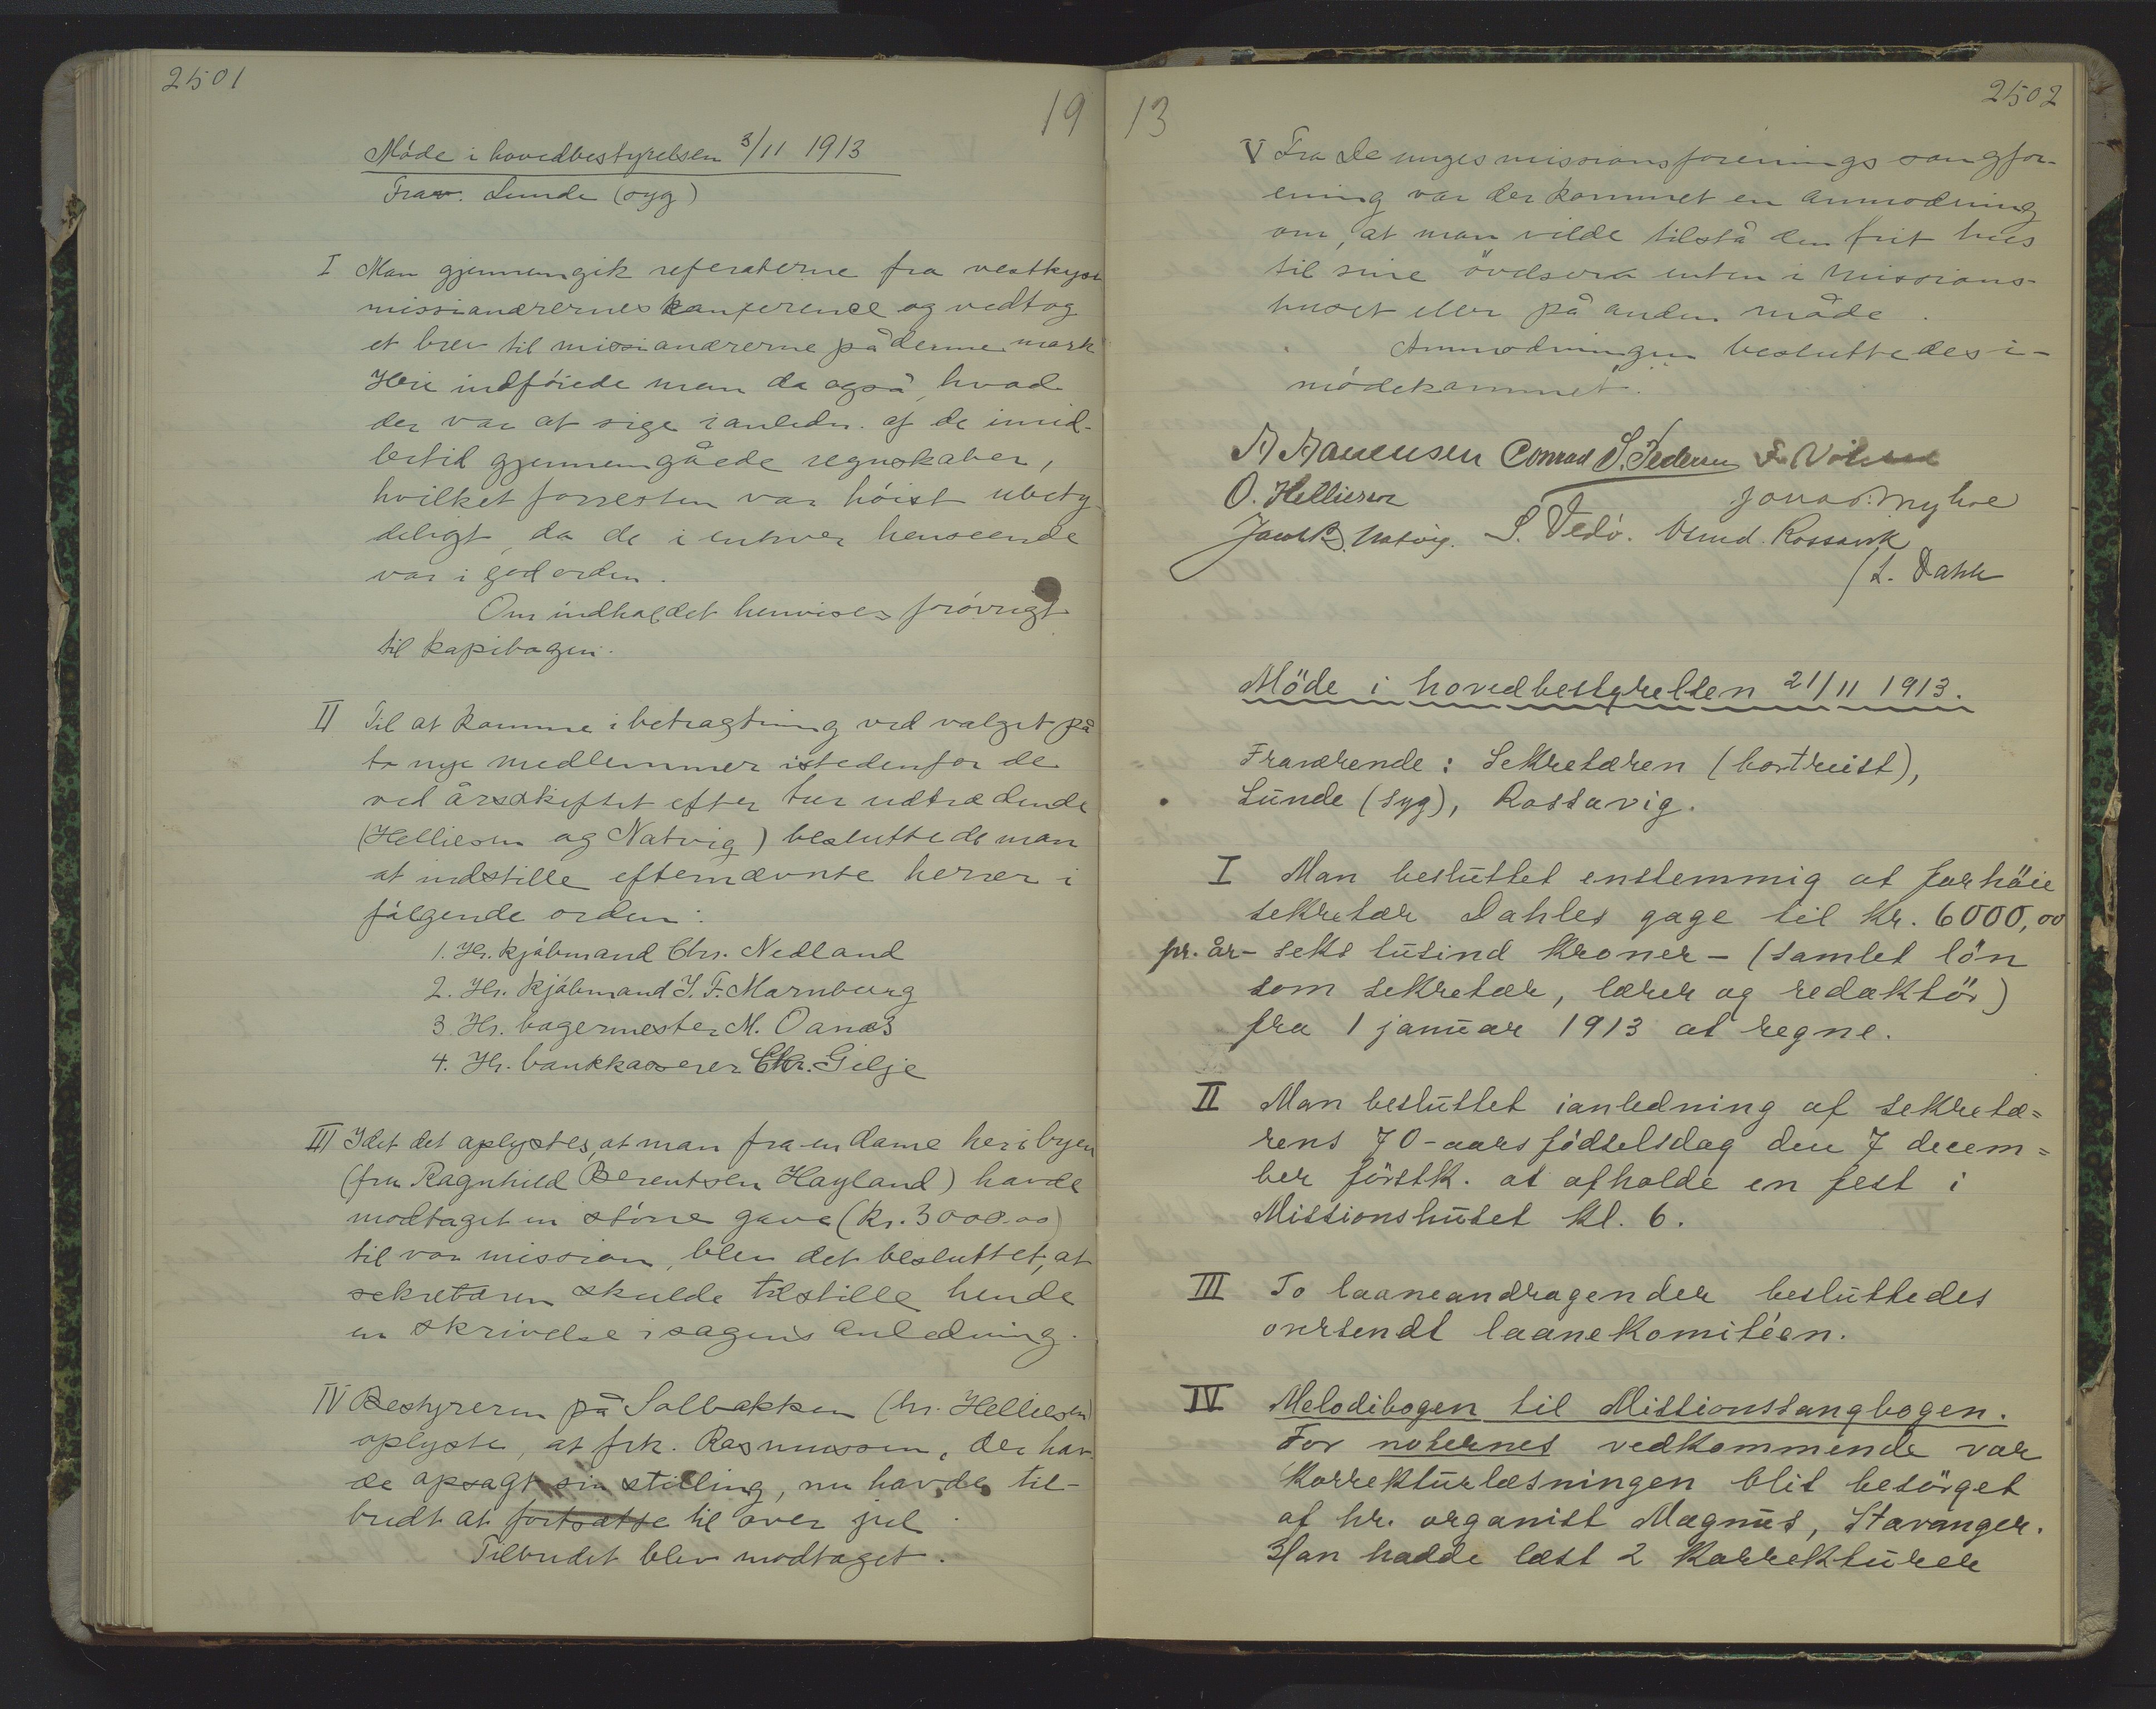 2501
19
Möde i hovedbestyrelsen 3/11 1913
Frav. Lunde (syg)
I Man gjennemgik referaterne fra vestkyst
missionærernes konference og vedtog
et brev til missionærerne på denne mark
Heri indföiede man da også, hvad
der var at sige i anledn. af de imid-
lertid gjennemgåede regnskaber,
hvilket forresten var höist ubety
deligt, da de i enhver henseende
var i god orden.
Om indholdet henvises forövrigt
til kopibogen.
II Til at komme i betragtning ved valget på
to nye medlemmer istedenfor de
ved årsskiftet efter tur udtrædende
(Helliesen og Natvig) besluttede man
at indstille eftenævnte herrer i
fölgende orden:
1. Hr. kjöbmand Chr. Nedland
2. Hr. kjöbmand J. F. Marnburg
3 Hr. bagermester M. Oanæs
4. Hr. bankkasserer Chr. Gilje
III Idet det oplystes, at man fra en dame her i byen
(fru Ragnhild Berentsen Høyland) havde
modtaget en större gave (kr. 3000.00)
til vor mission, blev det besluttet, at
sekretæren skulde tilstille hende
en skrivelse i sagens anledning.
IV Bestyreren på Solbakken (hr. Helliesen)
oplyste, at frk. Rasmussen, der hav-
de opsagt sin stilling, nu havde til-
budt at fortsætte til over jul.
Tilbudet blev modtaget.
13
2502
V Fra De unges missionsforenings sangfor-
ening var der kommet en anmodning
om, at man vilde tilstå den frit hus
til sine övelser enten i missions-
huset eller på anden måde.
Anmodningen besluttedes i-
mödekommet.
Conrad S. Pedersen
O. Helliesen
Jonas Myhre
Jacob B. Natvig. S. Vedö. Osmd. Rossavik
/ L. Dahle
Möde i hovedbestyrelsen 21/11 1913.
Fraværende: Sekretæren (bortreist),
Lunde (syg), Rossavig.
I Man besluttet enstemmig at forhöie
sekretær Dahles gage til Kr. 6000,00
pr. år - seks tusind kroner - (samlet lön
som sekretær, lærer og redaktör)
fra 1 januar 1913 at regne.
II Man besluttet ianledning af sekretæ=
rens 70-aars födselsdag den 7 decem=
ber förstk. at afholde en fest i
Missionshuset kl. 6.
III To laaneandragender besluttedes
oversendt laanekomitéen.
IV Melodibogen til Missionssangbogen.
For noternes vedkommende var
korrekturlæsningen blit besörget
af hr. organist Magnus, Stavanger.
Han hadde læst 2 korrekturer